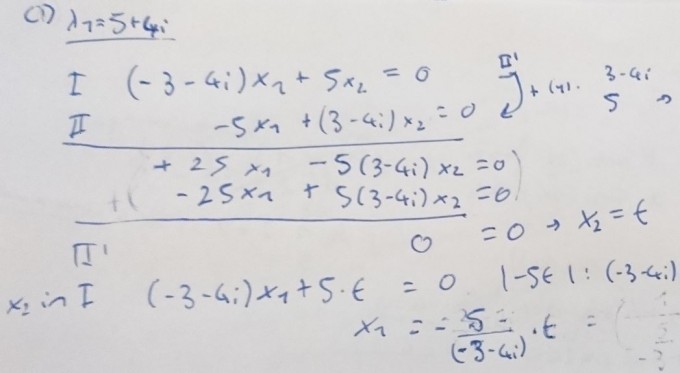 (1) λ₁=5+4i
I (-3-4i)x₁ + 5x₂ = 0
II -5x₁ + (3-4i)x₂ = 0
II' + (-1)· 3-4i
5 →
+ 25 x₁ - 5(3-4i) x₂ = 0
- 25x₁ + 5(3-4i) x₂ = 0
II' 0 = 0 → x₂ = t
x₂ in I (-3-4i)x₁ + 5·t = 0 |-5t |: (-3-4i)
x₁ = - 5/(-3-4i) · t =